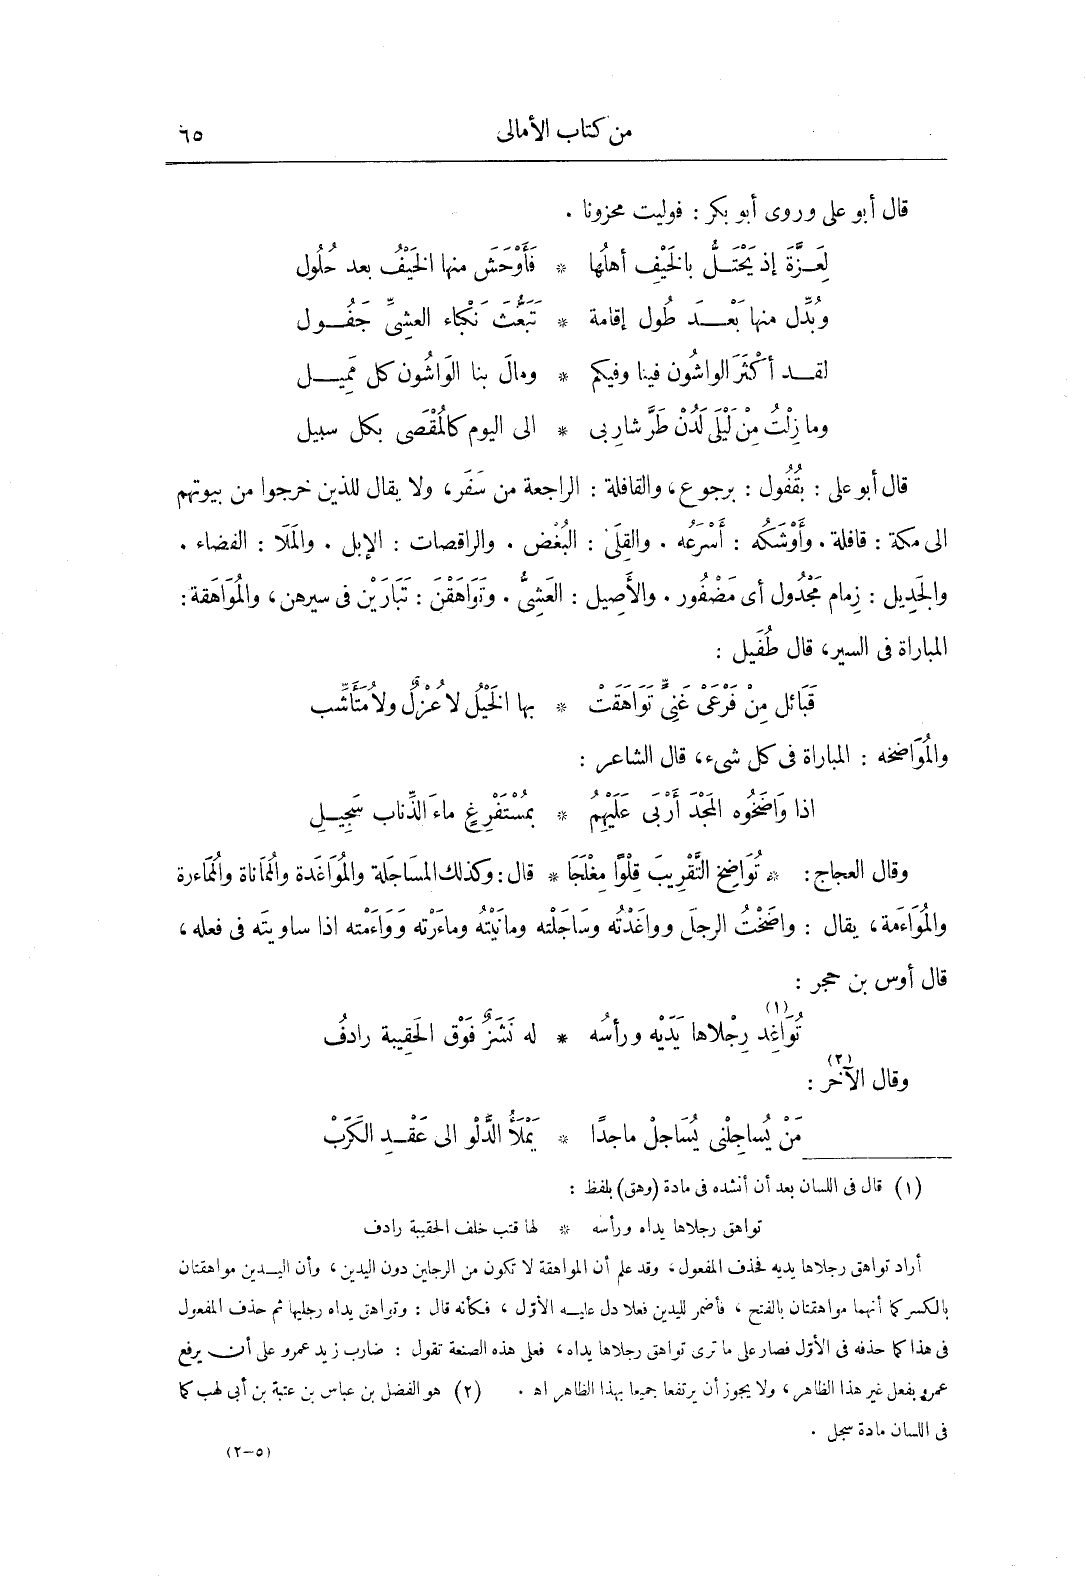 من كتاب الأمالى ٦٥
قال أبو على وروى أبو بكر : فوليت محزونا .
لِعَزَّةَ إذ يَحْتَلُّ بالخَيْفِ أهلُها * فَأَوْحَشَ منها الخَيْفُ بعد حُلُول
وبُدِّل منها بَعْدَ طُول إقامة * تَبَعُّثَ نَكْباء العشىِّ جَفُول
لقد أكْثَرَ الواشُون فينا وفيكم * ومالَ بنا الوَاشُون كل مَمِيل
وما زِلْتُ مِنْ لَيْلَى لَدُنْ طَرَّ شاربى * الى اليوم كالمُقْصَى بكل سبيل
قال أبو على : بقُفُول : برجوع، والقافلة : الراجعة من سَفَر، ولا يقال للذين خرجوا من بيوتهم
الى مكة : قافلة . وأَوْشَكُه : أَسْرَعُه . والقِلَى : البُغْض . والراقصات : الإبل . والمَلَا : الفضاء .
والجَدِيل : زِمام مَجْدُول أى مَضْفُور . والأَصِيل : العَشِىُّ . وتَوَاهَقْنَ : تَبَارَيْن فى سيرهن، والمُوَاهَقة :
المباراة فى السير، قال طُفَيل :
قَبَائل مِنْ فَرْعَىْ غَنِىٍّ تَوَاهَقَتْ * بها الخَيْلُ لا عُزْلٌ ولا مُتَأَشَّب
والمُوَاضَخه : المباراة فى كل شىء، قال الشاعر :
اذا وَاضَخُوه المَجْدَ أَرْبَى عَلَيْهِمُ * بمُسْتَفْرِغٍ ماءَ الذِّناب سَجِيلِ
وقال العجاج : * تُوَاضِخ التَّقْرِيبَ قِلْوًا مِغْلَجَا * قال : وكذلك المسَاجَلة والمُوَاغَدة والمُمَاناة والمُمَاءَرة
والمُوَاءَمة، يقال : واضَخْتُ الرجلَ وواغَدْتُه وسَاجَلْته ومانَيْتُه وماءَرْته ووَاءَمْته اذا ساويتَه فى فعله،
قال أوس بن حجر :
تُوَاغِد رِجْلاها يَدَيْه ورأسُه (١) * له نَشَزٌ فَوْق الحَقِيبة رادفُ
وقال الآخر (٢) :
مَنْ يُساجِلْنى يُسَاجلْ ماجدًا * يَمْلَأُ الدَّلْو الى عَقْدِ الكَرَبْ
(١) قال فى اللسان بعد أن أنشده فى مادة (وهق) بلفظ :
تواهق رجلاها يداه ورأسه * لها قتب خلف الحقيبة رادف
أراد تواهق رجلاها يديه فحذف المفعول، وقد علم أن المواهقة لا تكون من الرجلين دون اليدين، وأن اليدين مواهقتان
بالكسر كما أنهما مواهقتان بالفتح، فأضمر لليدين فعلا دل عليه الأوّل، فكأنه قال : وتواهق يداه رجليها ثم حذف المفعول
فى هذا كما حذفه فى الأوّل فصار على ما ترى تواهق رجلاها يداه، فعلى هذه الصنعة تقول : ضارب زيد عمرو على أن يرفع
عمرو بفعل غير هذا الظاهر، ولا يجوز أن يرتفعا جميعا بهذا الظاهر اه . (٢) هو الفضل بن عباس بن عتبة بن أبى لهب كما
فى اللسان مادة سجل .
(٥-٢)